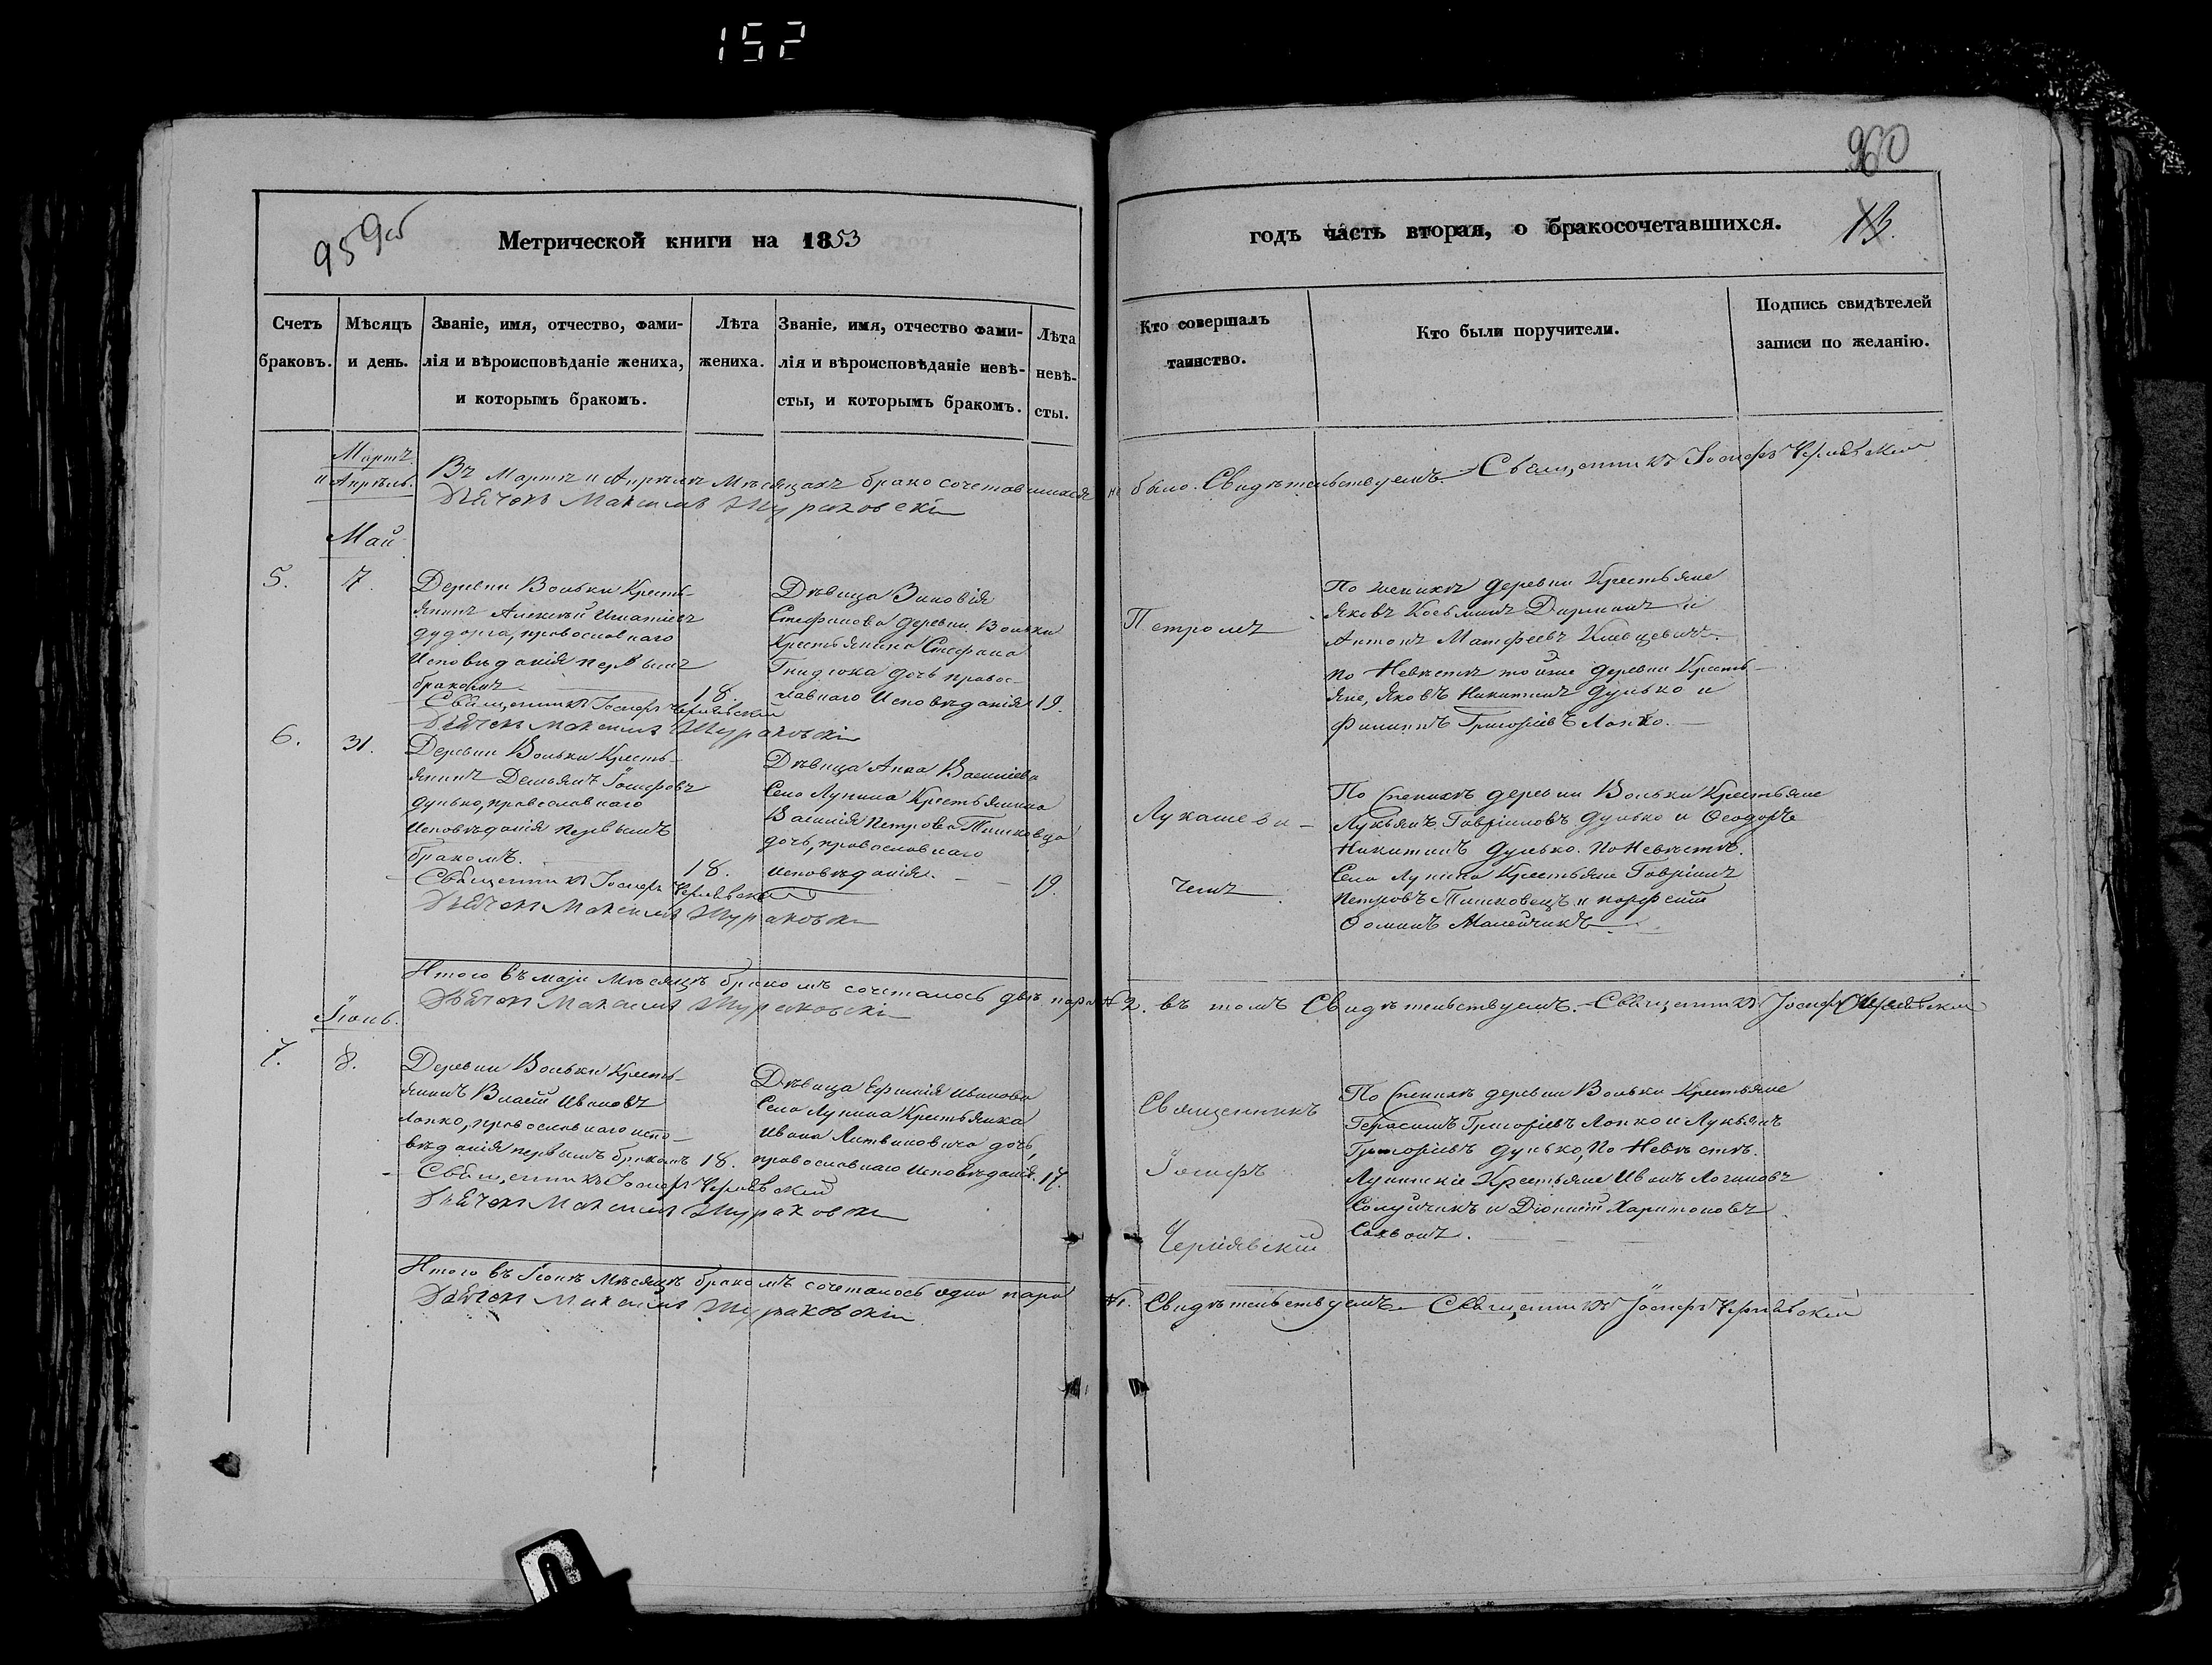 152
960
959об
Метрической книги на 1853
годъ часть вторая, о бракосочетавшихся.
13.
Счетъ браковъ.
Мѣсяцъ и день.
Званіе, имя, отчество, фами-
лія и вѣроисповѣданіе жениха,
и которымъ бракомъ.
Лѣта жениха.
Званіе, имя, отчество фами-
лія и вѣроисповѣданіе невѣ-
сты, и которымъ бракомъ.
Лѣта невѣ-
сты.
Кто совершалъ таинство.
Кто были поручители.
Подпись свидѣтелей
записи по желанію.
Мартъ
и Апрѣль.
Въ Мартѣ и Апрѣлѣ Мѣсяцахъ бракосочетавшихся не было. Свидѣтельствуемъ. Священникъ Іосифъ Чернявскій
Дьячокъ Максимъ Жураковскій
Май
5.
7.
Деревни Вольки Кресть-
янинъ Алексѣй Игнатіевъ
дудорга, православнаго
Исповѣданія первымъ
бракомъ.
18.
Священникъ Іосифъ Чернявскій
Дьячокъ Максимъ Жураковскій
Дѣвица Зиновія
Стефанова деревни Вольки
Крестьянина Стефана
Гнидюка дочь правос-
лавнаго Исповѣданія
19.
Петромъ
По женихѣ деревни Крестьяне
Яковъ Косьминъ и
Антонъ Матфеевъ Климцевичъ.
по Невѣстѣ тойже деревни Кресть-
яне, Яковъ Никитинъ дулько и
Филиппъ Григоріевъ Лопко.
6.
31.
Деревни Вольки Кресть-
янинъ Демьянъ Іосифовъ
дулько, православнаго
Исповѣданія первымъ
бракомъ.
18.
Священникъ Іосифъ Чернявскій
Дьячокъ Максимъ Жураковскій
Дѣвица Анна Василіева
Села Лунина Крестьянина
Василія Петрова Тишковца
дочь, православнаго
исповѣданія.
19.
Лукашеви-
чемъ
По Женихѣ деревни Вольки Крестьяне
Лукьянъ Гавріиловъ дулько и Ѳеодоръ
Никитинъ дулько. По Невѣстѣ.
Села Лунина Крестьяне Гавріилъ
Петровъ Тишковецъ и Порфирій
Ѳоминъ Малейчикъ
Итого въ маји Мѣсяцѣ бракомъ сочеталось двѣ пары № 2. въ томъ Свидѣтельствуемъ. Священникъ Іосифъ Чернявскій
Дьячокъ Максимъ Жураковскій
Іюнь.
7.
8.
Деревни Вольки Кресть-
янинъ Власій Ивановъ
Лопко, православнаго испо-
вѣданія первымъ бракомъ
18.
Священникъ Іосифъ Чернявскій
Дьячокъ Максимъ Жураковскій
Дѣвица Ефимія Иванова
Села Лунина Крестьянка
Ивана Литвиновича дочь,
православнаго Исповѣданія.
17.
Священникъ
Іосифъ
Чернявскій
По Женихѣ деревни Вольки Крестьяне
Герасимъ Григоріевъ Лопко и Лукьянъ
Григоріевъ дулько, По Невѣстѣ.
Лунинскіе Крестьяне Иванъ Логиновъ
и Діонисій Харитоновъ
Итого въ Іюнѣ Мѣсяцѣ бракомъ сочеталось одна пара № 1. Свидѣтельствуемъ Священникъ Іосифъ Чернявскій
Дьячокъ Максимъ Жураковскій